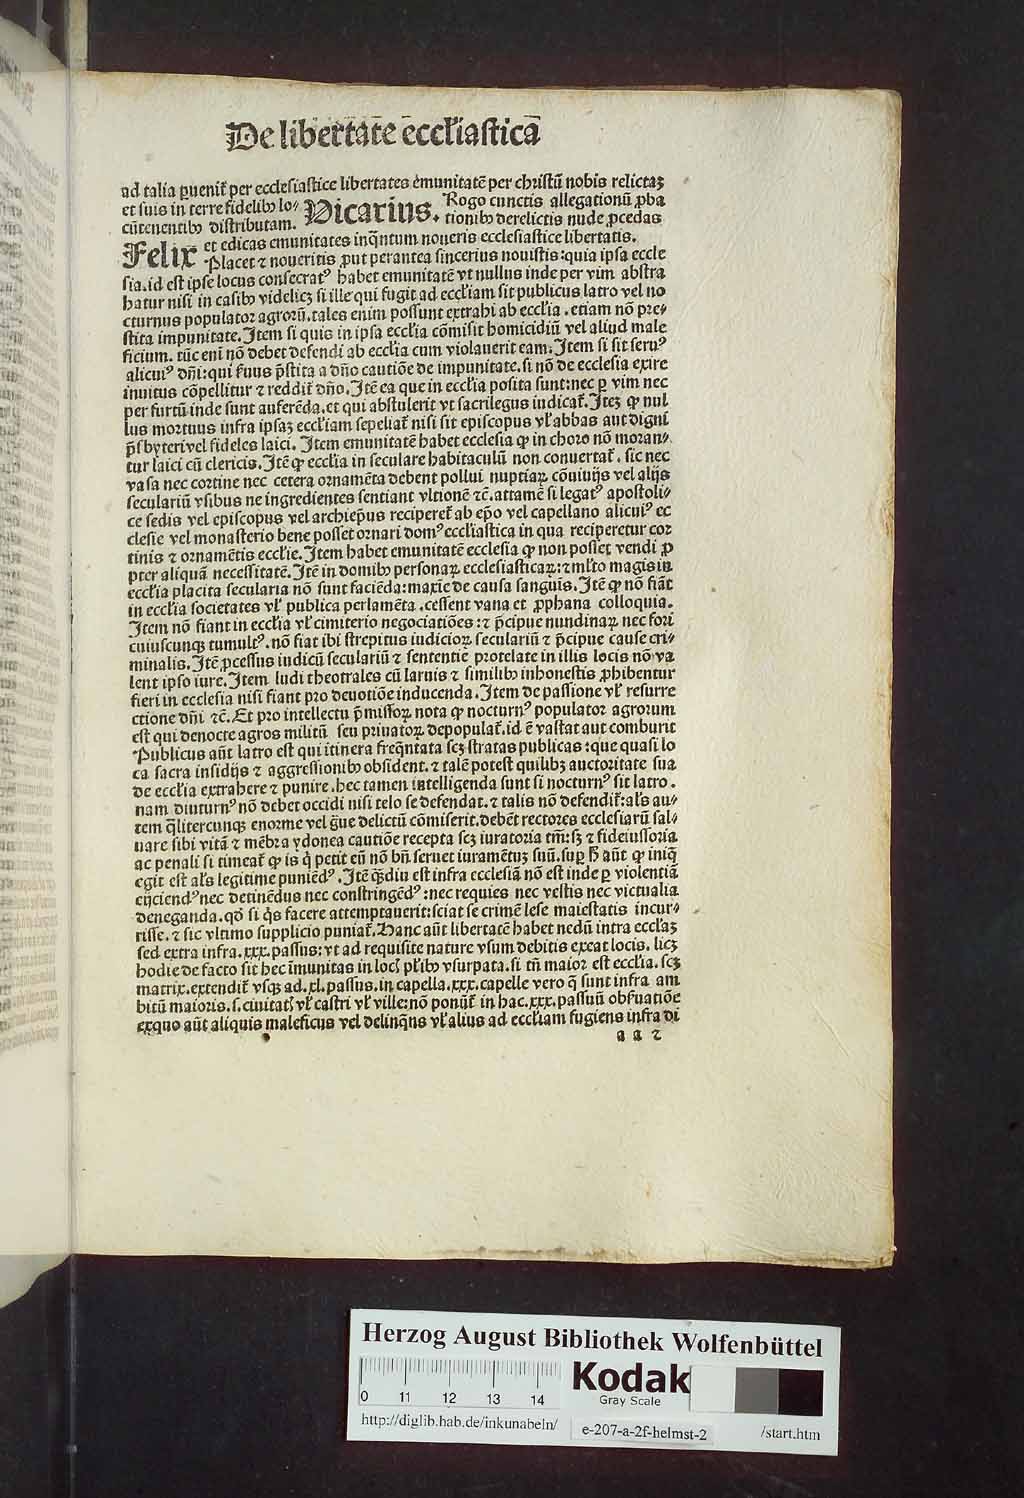 De libertate ēccl̄iasticā
ad talia ꝑuenit᷑ per ecclesiastice libertates ēmunitatē per christū nobis relictaꝫ
et suis in terre fidelibꝰ lo⸗ Vicarius. Rogo cunctis allegationū ꝓba
cūtenentibꝰ distributam. tionibꝰ derelictis nude ꝓcedas
Felix et edicas emunitates inq̄ntum noueris ecclesiastice libertatis.
Placet ⁊ noueritis ꝓut perantea sincerius nouistis: quia ipsa eccle
sia. id est ipse locus consecratꝰ habet emunitatē vt nullus inde per vim abstra
hatur nisi in casibꝰ videlicꝫ si ille qui fugit ad eccl̄iam sit publicus latro vel no
cturnus populator agrorū. tales enim possunt extrahi ab eccl̄ia. etiam nō pre⸗
stita impunitate. Item si quis in ipsa eccl̄ia cōmisit homicidiū vel aliud male
ficium. tūc enī nō debet defendi ab eccl̄ia cum violauerit eam. Item si sit seruꝰ
alicuiꝰ dn̄i: qui s̄uus p̄stita a dn̄o cautiōe de impunitate. si nō de ecclesia exire
inuitus cōpellitur ⁊ reddit᷑ dn̄o. Itē ea que in eccl̄ia posita sunt: nec ꝑ vim nec
per furtū inde sunt auferēda. et qui abstulerit vt sacrilegus iudicat᷑. Iteꝫ ꝙ nul
lus mortuus infra ipsaꝫ eccl̄iam sepeliat᷑ nisi sit episcopus vl᷑ abbas aut digni
p̄sbyteri vel fideles laici. Item emunitatē habet ecclesia ꝙ in choro nō moran⸗
tur laici cū clericis. Itē ꝙ eccl̄ia in seculare habitaculū non conuertat᷑. sic nec
vasa nec cortine nec cetera ornamēta debent pollui nuptiaꝝ cōuiuijs vel alijs
seculariū vsibus ne ingredientes sentiant vltionē ⁊c̄. attamē si legatꝰ apostoli⸗
ce sedis vel episcopus vel archiep̄us reciperet᷑ ab ep̄o vel capellano alicuiꝰ ec
clesie vel monasterio bene posset ornari domꝰ eccl̄iastica in qua reciperetur cor
tinis ⁊ ornamētis eccl̄ie. Item habet emunitatē ecclesia ꝙ non posset vendi ꝓ
pter aliquā necessitatē. Itē in domibꝰ personaꝝ ecclesiasticaꝝ: ⁊ ml̄to magis in
eccl̄ia placita secularia nō sunt faciēda: maxīe de causa sanguīs. Itē ꝙ nō fiāt
in eccl̄ia societates vl᷑ publica perlamēta. cessent vana et ꝓphana colloquia.
Item nō fiant in eccl̄ia vl᷑ cimiterio negociatiōes: ⁊ p̄cipue nundinaꝝ nec fori
cuiuscunqꝫ tumultꝰ. nō fiat ibi strepitus iudicioꝝ seculariū ⁊ p̄cipue cause cri⸗
minalis. Itē ꝓcessus iudicū seculariū ⁊ sententie protelate in illis locis nō va
lent ipso iure. Item ludi theotrales cū laruis ⁊ similibꝰ inhonestis ꝓhibentur
fieri in ecclesia nisi fiant pro deuotiōe inducenda. Item de passione vl᷑ resurre
ctione dn̄i ⁊c̄. Et pro intellectu p̄missoꝝ nota ꝙ nocturnꝰ populator agrorum
est qui denocte agros militū seu priuatoꝝ depopulat᷑. id ē vastat aut comburit
Publicus aūt latro est qui itinera freq̄ntata scꝫ stratas publicas: que quasi lo
ca sacra insidijs ⁊ aggressionibꝰ obsident. ⁊ talē potest quilibꝫ auctoritate sua
de eccl̄ia extrahere ⁊ punire. hec tamen intelligenda sunt si nocturnꝰ sit latro.
nam diuturnꝰ nō debet occidi nisi telo se defendat. ⁊ talis nō defendit᷑: al̄s au⸗
tem q̄litercunqꝫ enorme vel ḡue delictū cōmiserit. debēt rectores ecclesiarū sal⸗
uare sibi vitā ⁊ mēbra ydonea cautiōe recepta scꝫ iuratoria tm̄: sꝫ ⁊ fideiussoria
ac penali si timeat᷑ ꝙ is q̇ petit eū nō bn̄ seruet iuramētuꝫ suū. suꝑ ħ aūt ꝙ iniq̄
egit est al̄s legitime puniēdꝰ. Itē q̄ꝫdiu est infra ecclesiā nō est inde ꝑ violentiā
eijciendꝰ nec detinēdus nec constringēdꝰ: nec requies nec vestis nec victualia
deneganda. qō si q̇s facere attemptauerit: sciat se crimē lese maiestatis incur⸗
risse. ⁊ sic vltimo supplicio puniat᷑. Hanc aūt libertatē habet nedū intra eccl̄aꝫ
sed extra infra. xxx. passus: vt ad requisite nature vsum debitis exeat locis. licꝫ
hodie de facto sit hec īmunitas in locꝭ pl᷑ibꝰ vsurpata. si tn̄ maior est eccl̄ia. scꝫ
matrix. extendit᷑ vsqꝫ ad. xl. passus. in capella. xxx. capelle vero q̄ sunt infra am
bitū maioris. s. ciuitatꝭ vl᷑ castri vl᷑ ville: nō ponūt᷑ in hac. xxx. passuū obs̄uatiōe
exquo aūt aliquis maleficus vel delinq̄ns vl᷑ alius ad eccl̄iam fugiens infra di
a a 2
Herzog August Bibliothek Wolfenbüttel
0 11 12 13 14
Kodak
Gray Scale
http://diglib.hab.de/inkunabeln/ e-207-a-2f-helmst-2 /start.htm